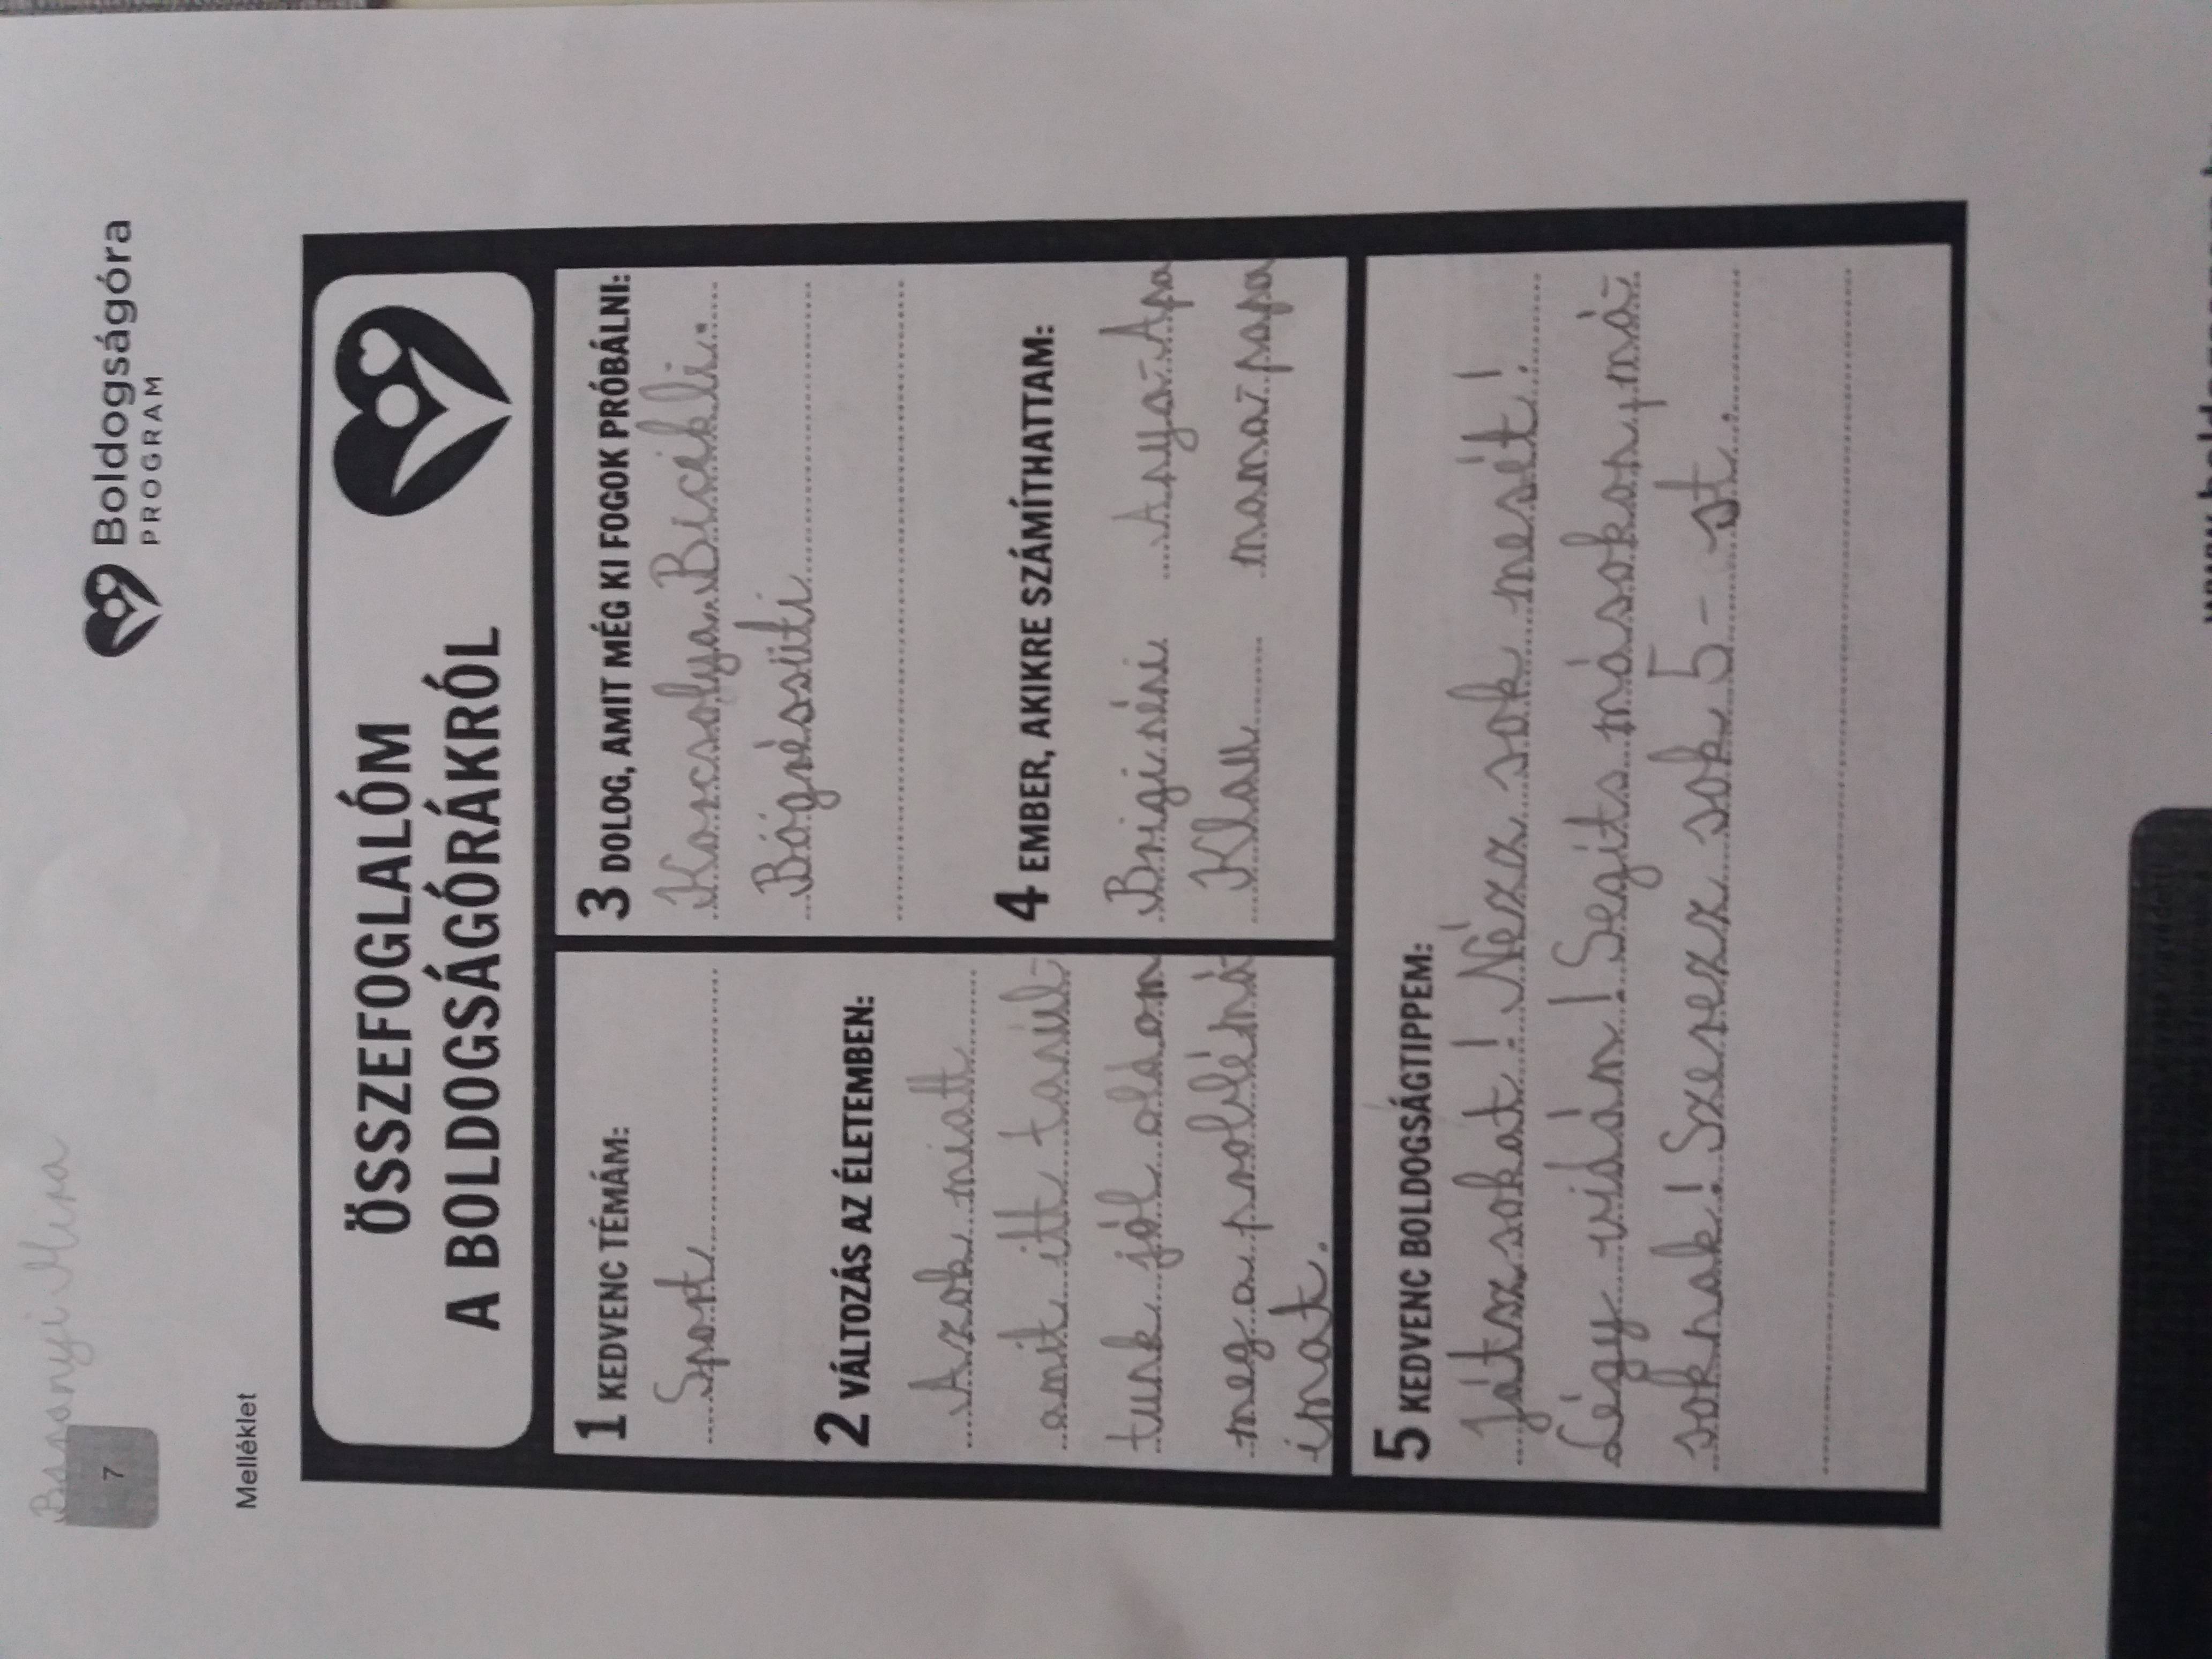 7
Boldogságóra
PROGRAM
Melléklet
ÖSSZEFOGLALÓM
A BOLDOGSÁGÓRÁKRÓL
1 KEDVENC TÉMÁM:
Sport
2 VÁLTOZÁS AZ ÉLETEMBEN:
Azok miatt
amit itt tanul-
tunk jól oldom
meg a problémá
imat.
3 DOLOG, AMIT MÉG KI FOGOK PRÓBÁLNI:
Korcsolya Bicikli.
Bögréssüti
4 EMBER, AKIKRE SZÁMÍTHATTAM:
Brigi néni Anya-Apa
Klau mama-papa
5 KEDVENC BOLDOGSÁGTIPPEM:
Játsz sokat! Nézz sok mesét!
Légy vidám! Segíts másokon, má-
soknak! Szerezz sok 5-st.